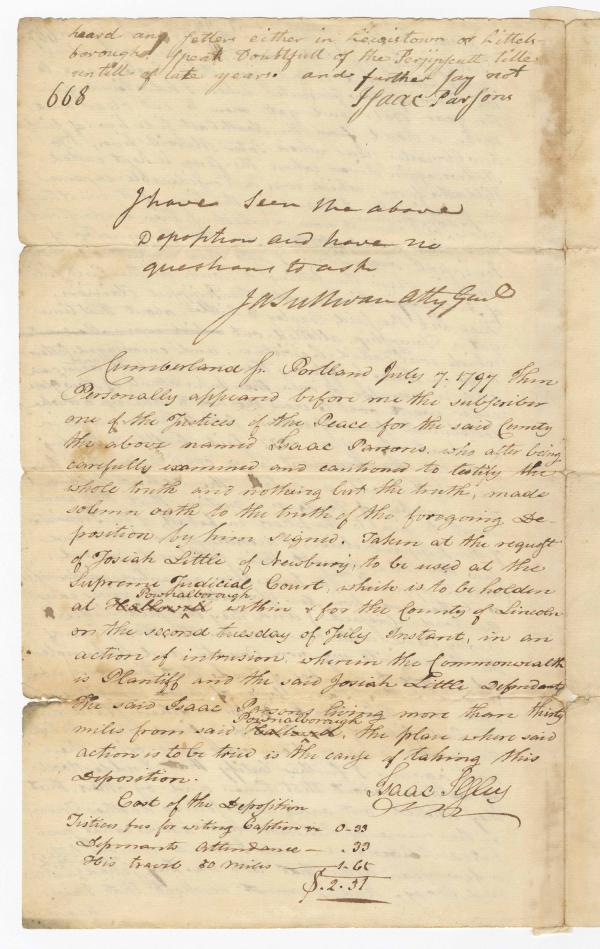 heard any setlers either in Lewistown or Littels-
borough Speak Doubtfull of the Pejipscutt title
untill of late years. and further Say not
668 Isaac Parsons
I have seen the above
Deposition and have no
questions to ask
Ja Sullivan Atty Genl
Cumberland ss. Portland July 7. 1797 Then
Personally appeared before me the subscriber
one of the Justices of the Peace for the said County
the above named Isaac Parsons, who after being
carefully examined and cautioned to testify the
whole truth and nothing but the truth, made
solemn oath to the truth of the foregoing De-
position by him signed. Taken at the request
of Josiah Little of Newbury, to be used at the
Supreme Judicial Court, which is to be holden
Pownalborough
at Hallowell within & for the County of Lincoln
on the second tuesday of July Instant, in an
action of intrusion, wherein the Commonwealth
is Plantiff and the said Josiah Little Defendant
The said Isaac Parsons living more than thirty
Pownalborough
miles from said Hallowell, the place where said
action is to be tried is the cause of taking this
Deposition.
Isaac Ilsley
Cost of the Deposition
Justices fees for writing Caption &c 0-33
Deponants attendance - .33
His travel 50 miles 1-65
$. 2. 31